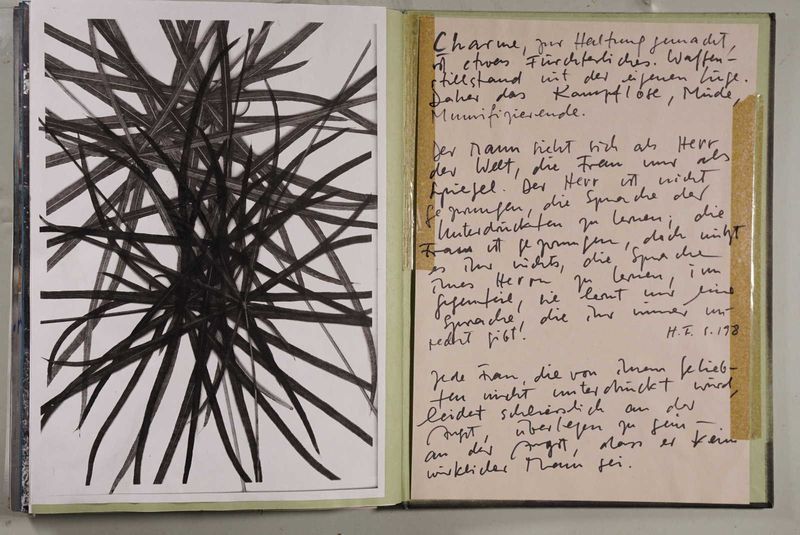 Charme, zur Haltung gemacht,
ist etwas Fürchterliches. Waffen-
stillstand mit der eigenen Lüge.
Daher das Kampflose, Müde,
Mumifizierende.
Der Mann sieht sich als Herr
der Welt, die Frau nur als
Spiegel. Der Herr ist nicht
gezwungen, die Sprache der
Unterdrückten zu lernen; die
Frau ist gezwungen, doch nützt
es ihr nichts, die Sprache
ihres Herrn zu lernen, im
Gegenteil, sie lernt nur eine
Sprache, die ihr immer un-
recht gibt!
H.F. S. 198
Jede Frau, die von ihrem Gelieb-
ten nicht unterdrückt wird,
leidet schliesslich an der
Angst, überlegen zu sein –
an der Angst, dass er kein
wirklicher Mann sei.